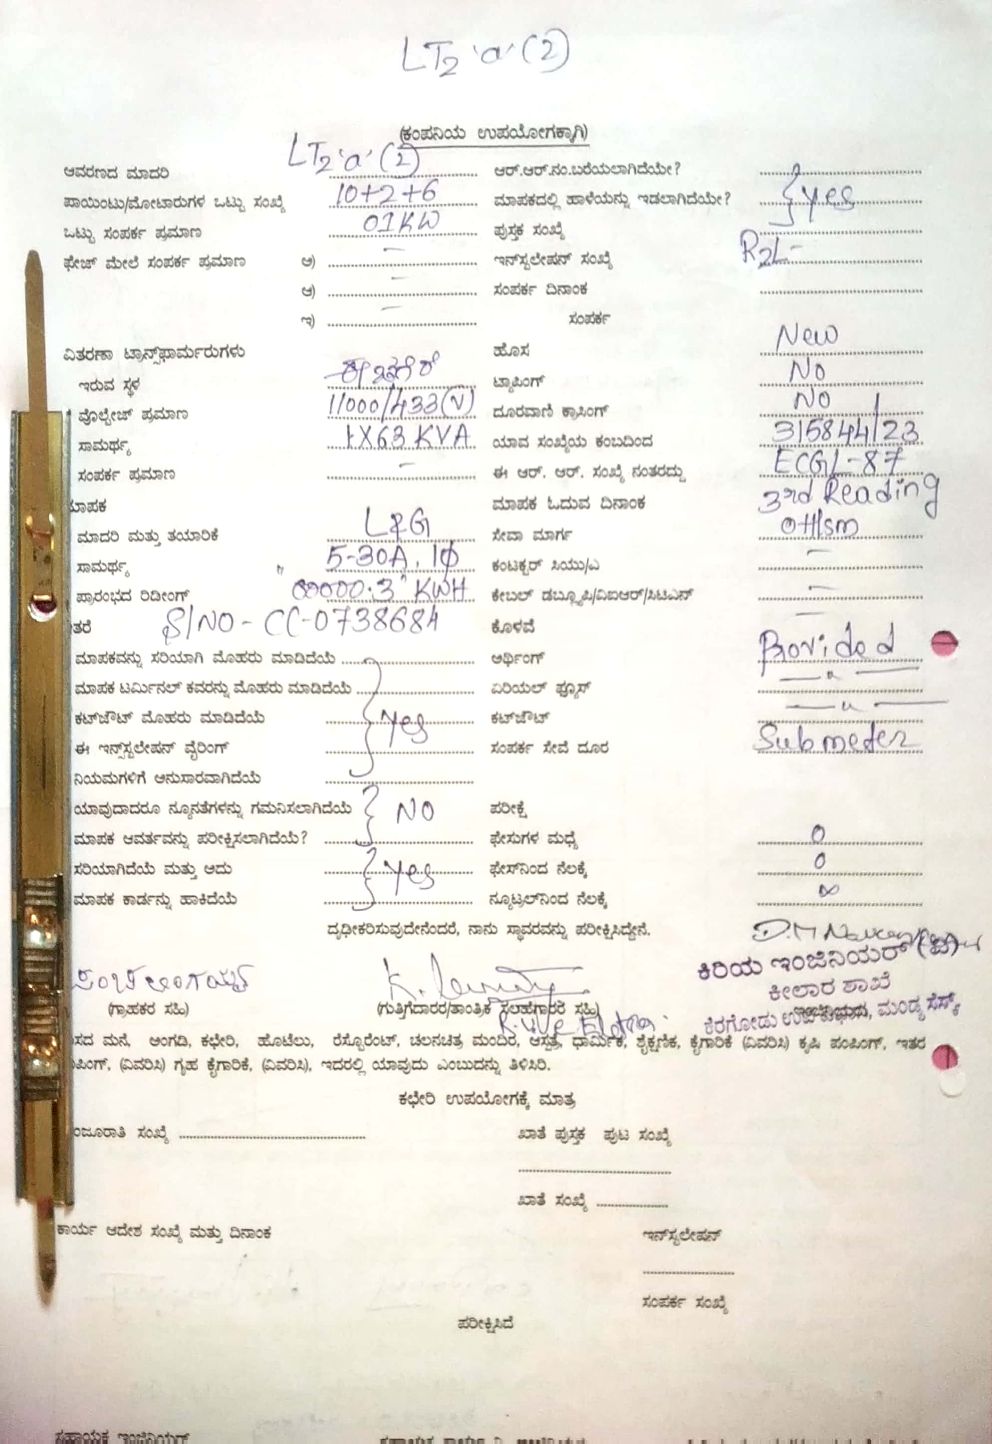 LT2 'a' (2)
(ಕಂಪನಿಯ ಉಪಯೋಗಕ್ಕಾಗಿ)
ಆವರಣದ ಮಾದರಿ LT2 'a' (2) ಆರ್.ಆರ್.ನಂ.ಬರೆಯಲಾಗಿದೆಯೇ?
ಪಾಯಿಂಟು/ಮೋಟಾರುಗಳ ಒಟ್ಟು ಸಂಖ್ಯೆ 10+2+6 ಮಾಪಕದಲ್ಲಿ ಹಾಳೆಯನ್ನು ಇಡಲಾಗಿದೆಯೇ? } yes
ಒಟ್ಟು ಸಂಪರ್ಕ ಪ್ರಮಾಣ 01KW ಪುಸ್ತಕ ಸಂಖ್ಯೆ
ಫೇಜ್ ಮೇಲೆ ಸಂಪರ್ಕ ಪ್ರಮಾಣ ಅ) – ಇನ್‌ಸ್ಟಲೇಷನ್ ಸಂಖ್ಯೆ R2L-
ಆ) – ಸಂಪರ್ಕ ದಿನಾಂಕ
ಇ) – ಸಂಪರ್ಕ
ವಿತರಣಾ ಟ್ರಾನ್ಸ್‌ಫಾರ್ಮರುಗಳು ಹೊಸ New
ಇರುವ ಸ್ಥಳ ಟ್ಯಾಪಿಂಗ್ No
ವೊಲ್ಟೇಜ್ ಪ್ರಮಾಣ 11000/433(V) ದೂರವಾಣಿ ಕ್ರಾಸಿಂಗ್ No
ಸಾಮರ್ಥ್ಯ 1X63 KVA ಯಾವ ಸಂಖ್ಯೆಯ ಕಂಬದಿಂದ 315844/23
ಸಂಪರ್ಕ ಪ್ರಮಾಣ – ಈ ಆರ್. ಆರ್. ಸಂಖ್ಯೆ ನಂತರದ್ದು ECGL-87
ಮಾಪಕ ಮಾಪಕ ಓದುವ ದಿನಾಂಕ 3rd Reading
ಮಾದರಿ ಮತ್ತು ತಯಾರಿಕೆ L&G ಸೇವಾ ಮಾರ್ಗ
ಸಾಮರ್ಥ್ಯ 5-30A, 1φ ಕಂಟಕ್ಟರ್ ಸಿಯು/ಎ –
ಪ್ರಾರಂಭದ ರಿಡೀಂಗ್ "00000.3" KWH ಕೇಬಲ್ ಡಬ್ಲ್ಯೂಪಿ/ವಿಐಆರ್/ಸಿಟಿಎಸ್ –
ತರೆ S/NO - CC-0738684 ಕೊಳವೆ –
ಮಾಪಕವನ್ನು ಸರಿಯಾಗಿ ಮೊಹರು ಮಾಡಿದೆಯೆ ಅರ್ಥಿಂಗ್ Provided
ಮಾಪಕ ಟರ್ಮಿನಲ್ ಕವರನ್ನು ಮೊಹರು ಮಾಡಿದೆಯೆ ಏರಿಯಲ್ ಫ್ಯೂಸ್ — " —
ಕಟ್‌ಔಟ್ ಮೊಹರು ಮಾಡಿದೆಯೆ } yes ಕಟ್‌ಔಟ್ — " —
ಈ ಇನ್ಸ್‌ಸ್ಟಲೇಷನ್ ವೈರಿಂಗ್ ಸಂಪರ್ಕ ಸೇವೆ ದೂರ Submeter
ನಿಯಮಗಳಿಗೆ ಅನುಸಾರವಾಗಿದೆಯೆ
ಯಾವುದಾದರೂ ನ್ಯೂನತೆಗಳನ್ನು ಗಮನಿಸಲಾಗಿದೆಯೆ } NO ಪರೀಕ್ಷೆ
ಮಾಪಕ ಆವರ್ತವನ್ನು ಪರೀಕ್ಷಿಸಲಾಗಿದೆಯೆ? ಫೇಸುಗಳ ಮಧ್ಯೆ 0
ಸರಿಯಾಗಿದೆಯೆ ಮತ್ತು ಅದು } yes ಫೇಸ್‌ನಿಂದ ನೆಲಕ್ಕೆ 0
ಮಾಪಕ ಕಾರ್ಡನ್ನು ಹಾಕಿದೆಯೆ ನ್ಯೂಟ್ರಲ್‌ನಿಂದ ನೆಲಕ್ಕೆ ∞
ದೃಢೀಕರಿಸುವುದೇನೆಂದರೆ, ನಾನು ಸ್ಥಾವರವನ್ನು ಪರೀಕ್ಷಿಸಿದ್ದೇನೆ.
ಕಿರಿಯ ಇಂಜಿನಿಯರ್ (ವಿ)
ಕೀಲಾರ ಶಾಖೆ
(ಗ್ರಾಹಕರ ಸಹಿ) (ಗುತ್ತಿಗೆದಾರರ/ತಾಂತ್ರಿಕ ಸಲಹೆಗಾರರ ಸಹಿ) ಕೆರಗೋಡು ಉಪ ವಿಭಾಗ, ಮಂಡ್ಯ ಸೆಸ್ಕ್
ಸದ ಮನೆ, ಅಂಗಡಿ, ಕಛೇರಿ, ಹೊಟೆಲು, ರೆಸ್ಟೊರೆಂಟ್, ಚಲನಚಿತ್ರ ಮಂದಿರ, ಆಸ್ಪತ್ರೆ, ಧಾರ್ಮಿಕ, ಶೈಕ್ಷಣಿಕ, ಕೈಗಾರಿಕೆ (ವಿವರಿಸಿ) ಕೃಷಿ ಪಂಪಿಂಗ್, ಇತರ
ಪಿಂಗ್, (ವಿವರಿಸಿ) ಗೃಹ ಕೈಗಾರಿಕೆ, (ವಿವರಿಸಿ), ಇದರಲ್ಲಿ ಯಾವುದು ಎಂಬುದನ್ನು ತಿಳಿಸಿರಿ.
ಕಛೇರಿ ಉಪಯೋಗಕ್ಕೆ ಮಾತ್ರ
ಂಜೂರಾತಿ ಸಂಖ್ಯೆ ಖಾತೆ ಪುಸ್ತಕ ಪುಟ ಸಂಖ್ಯೆ
ಖಾತೆ ಸಂಖ್ಯೆ
ಕಾರ್ಯ ಆದೇಶ ಸಂಖ್ಯೆ ಮತ್ತು ದಿನಾಂಕ ಇನ್‌ಸ್ಟಲೇಷನ್
ಸಂಪರ್ಕ ಸಂಖ್ಯೆ
ಪರೀಕ್ಷಿಸಿದೆ
ಸಹಾಯಕ ಇಂಜಿನಿಯರ್